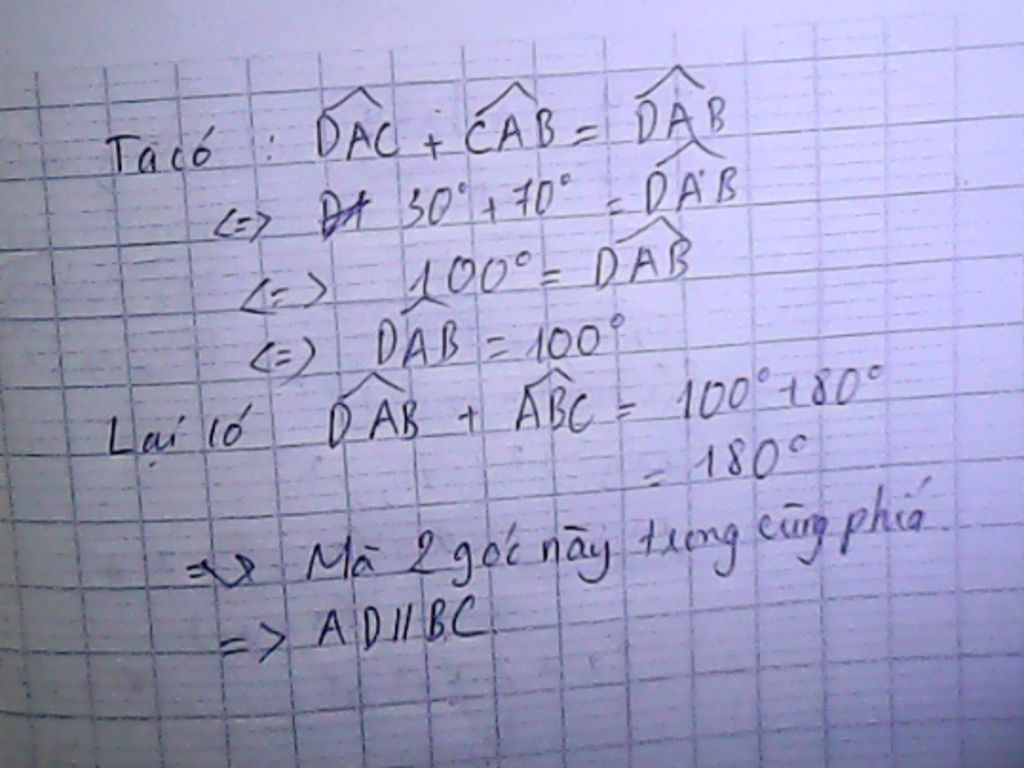 Ta có : \widehat{DAC} + \widehat{CAB} = \widehat{DAB}
<=> 30° + 70° = \widehat{DAB}
<=> 100° = \widehat{DAB}
<=> \widehat{DAB} = 100°
Lại có \widehat{DAB} + \widehat{ABC} = 100° + 80°
= 180°
=> Mà 2 góc này trong cùng phía
=> AD // BC